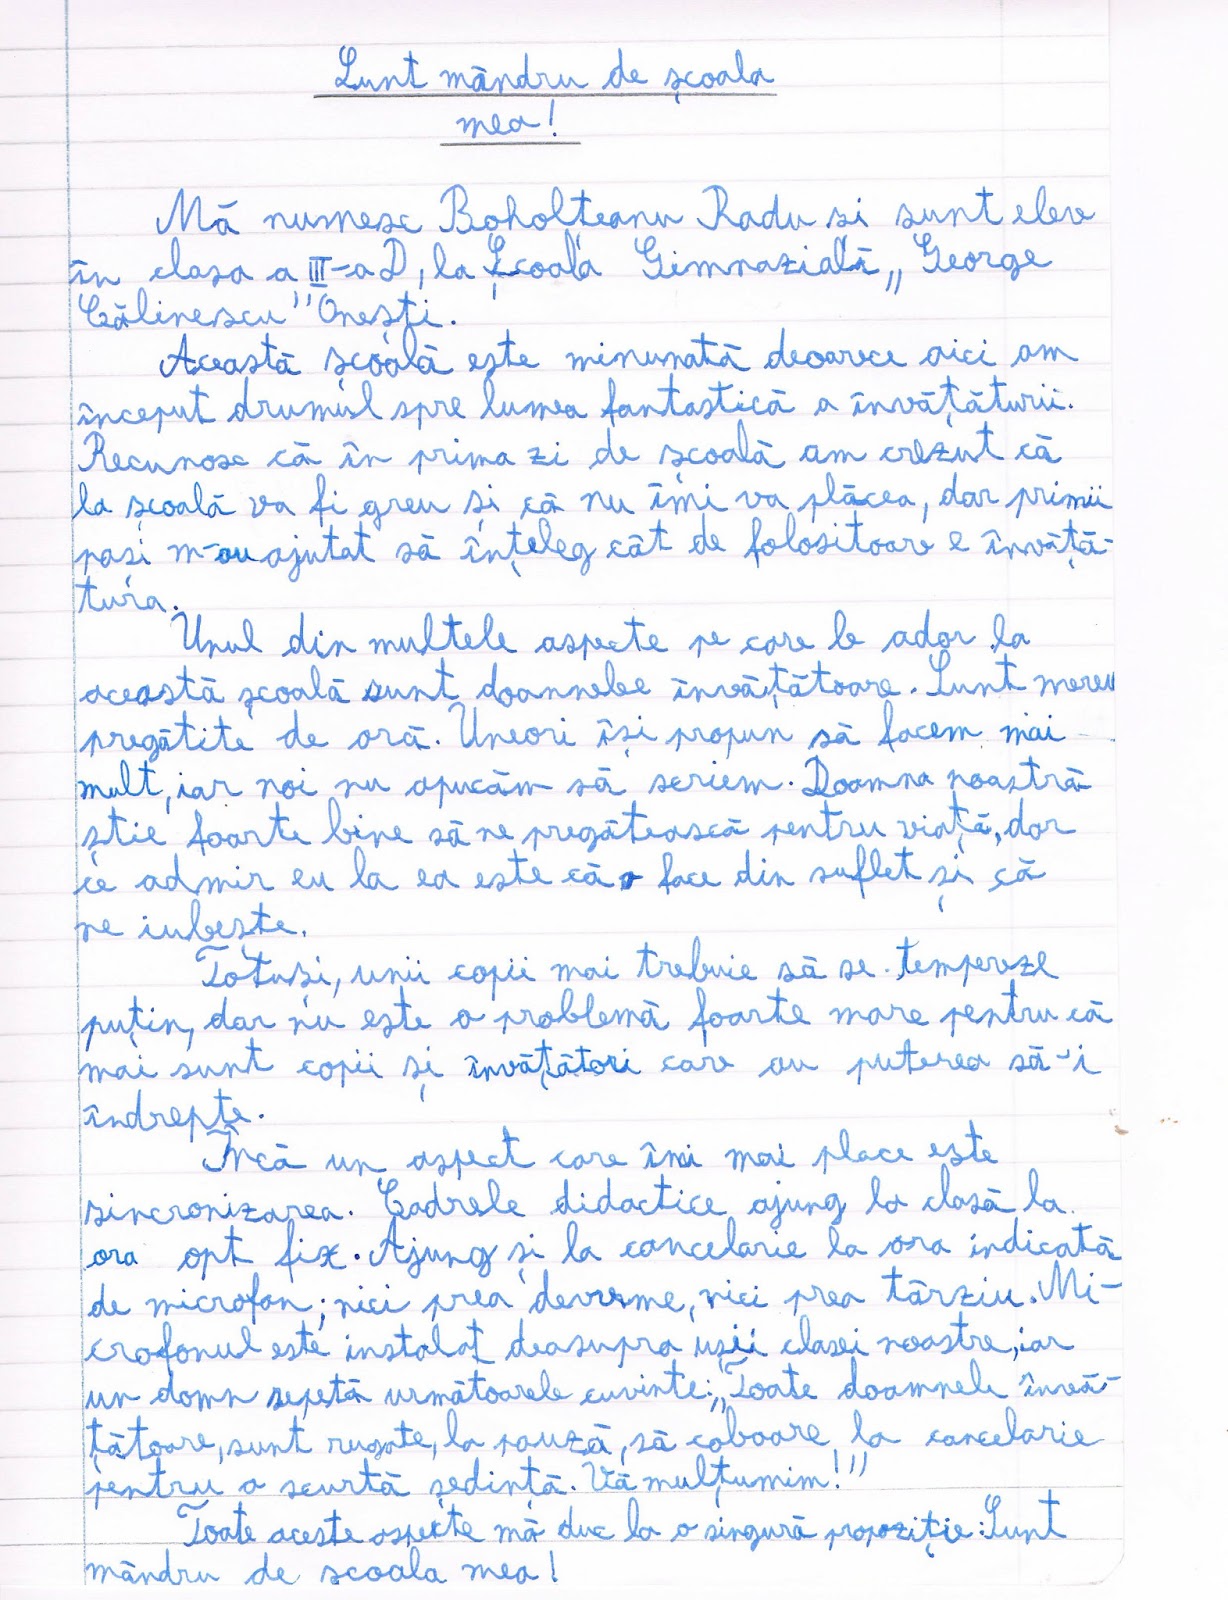 Sunt mândru de școala
mea!
Mă numesc Boholțeanu Radu si sunt elev
în clasa a III-a D, la Școala Gimnazială „George
Călinescu" Onești.
Această școală este minunată deoarece aici am
început drumul spre lumea fantastică a învățăturii.
Recunosc că în prima zi de școală am crezut că
la școală va fi greu și că nu îmi va plăcea, dar primii
pasi m-au ajutat să înțeleg cât de folositoare e învăță-
tura.
Unul din multele aspecte pe care le ador la
această școală sunt doamnele învățătoare. Sunt mereu
pregătite de oră. Uneori își propun să facem mai
mult, iar noi nu apucăm să scriem. Doamna noastră
știe foarte bine să ne pregătească pentru viață, dar
ce admir eu la ea este că o face din suflet și că
ne iubește.
Totuși, unii copii mai trebuie să se tempereze
puțin, dar nu este o problemă foarte mare pentru că
mai sunt copii și învățători care au puterea să-i
îndrepte.
Încă un aspect care îmi mai place este
sincronizarea. Cadrele didactice ajung la clasă la
ora opt fix. Ajung și la cancelarie la ora indicată
de microfon; nici prea devreme, nici prea târziu. Mi-
crofonul este instalat deasupra ușii clasei noastre, iar
un domn repetă următoarele cuvinte: „Toate doamnele învă-
țătoare, sunt rugate, la pauză, să coboare la cancelarie
pentru o scurtă ședință. Vă mulțumim!"
Toate aceste aspecte mă duc la o singură propoziție: Sunt
mândru de scoala mea!